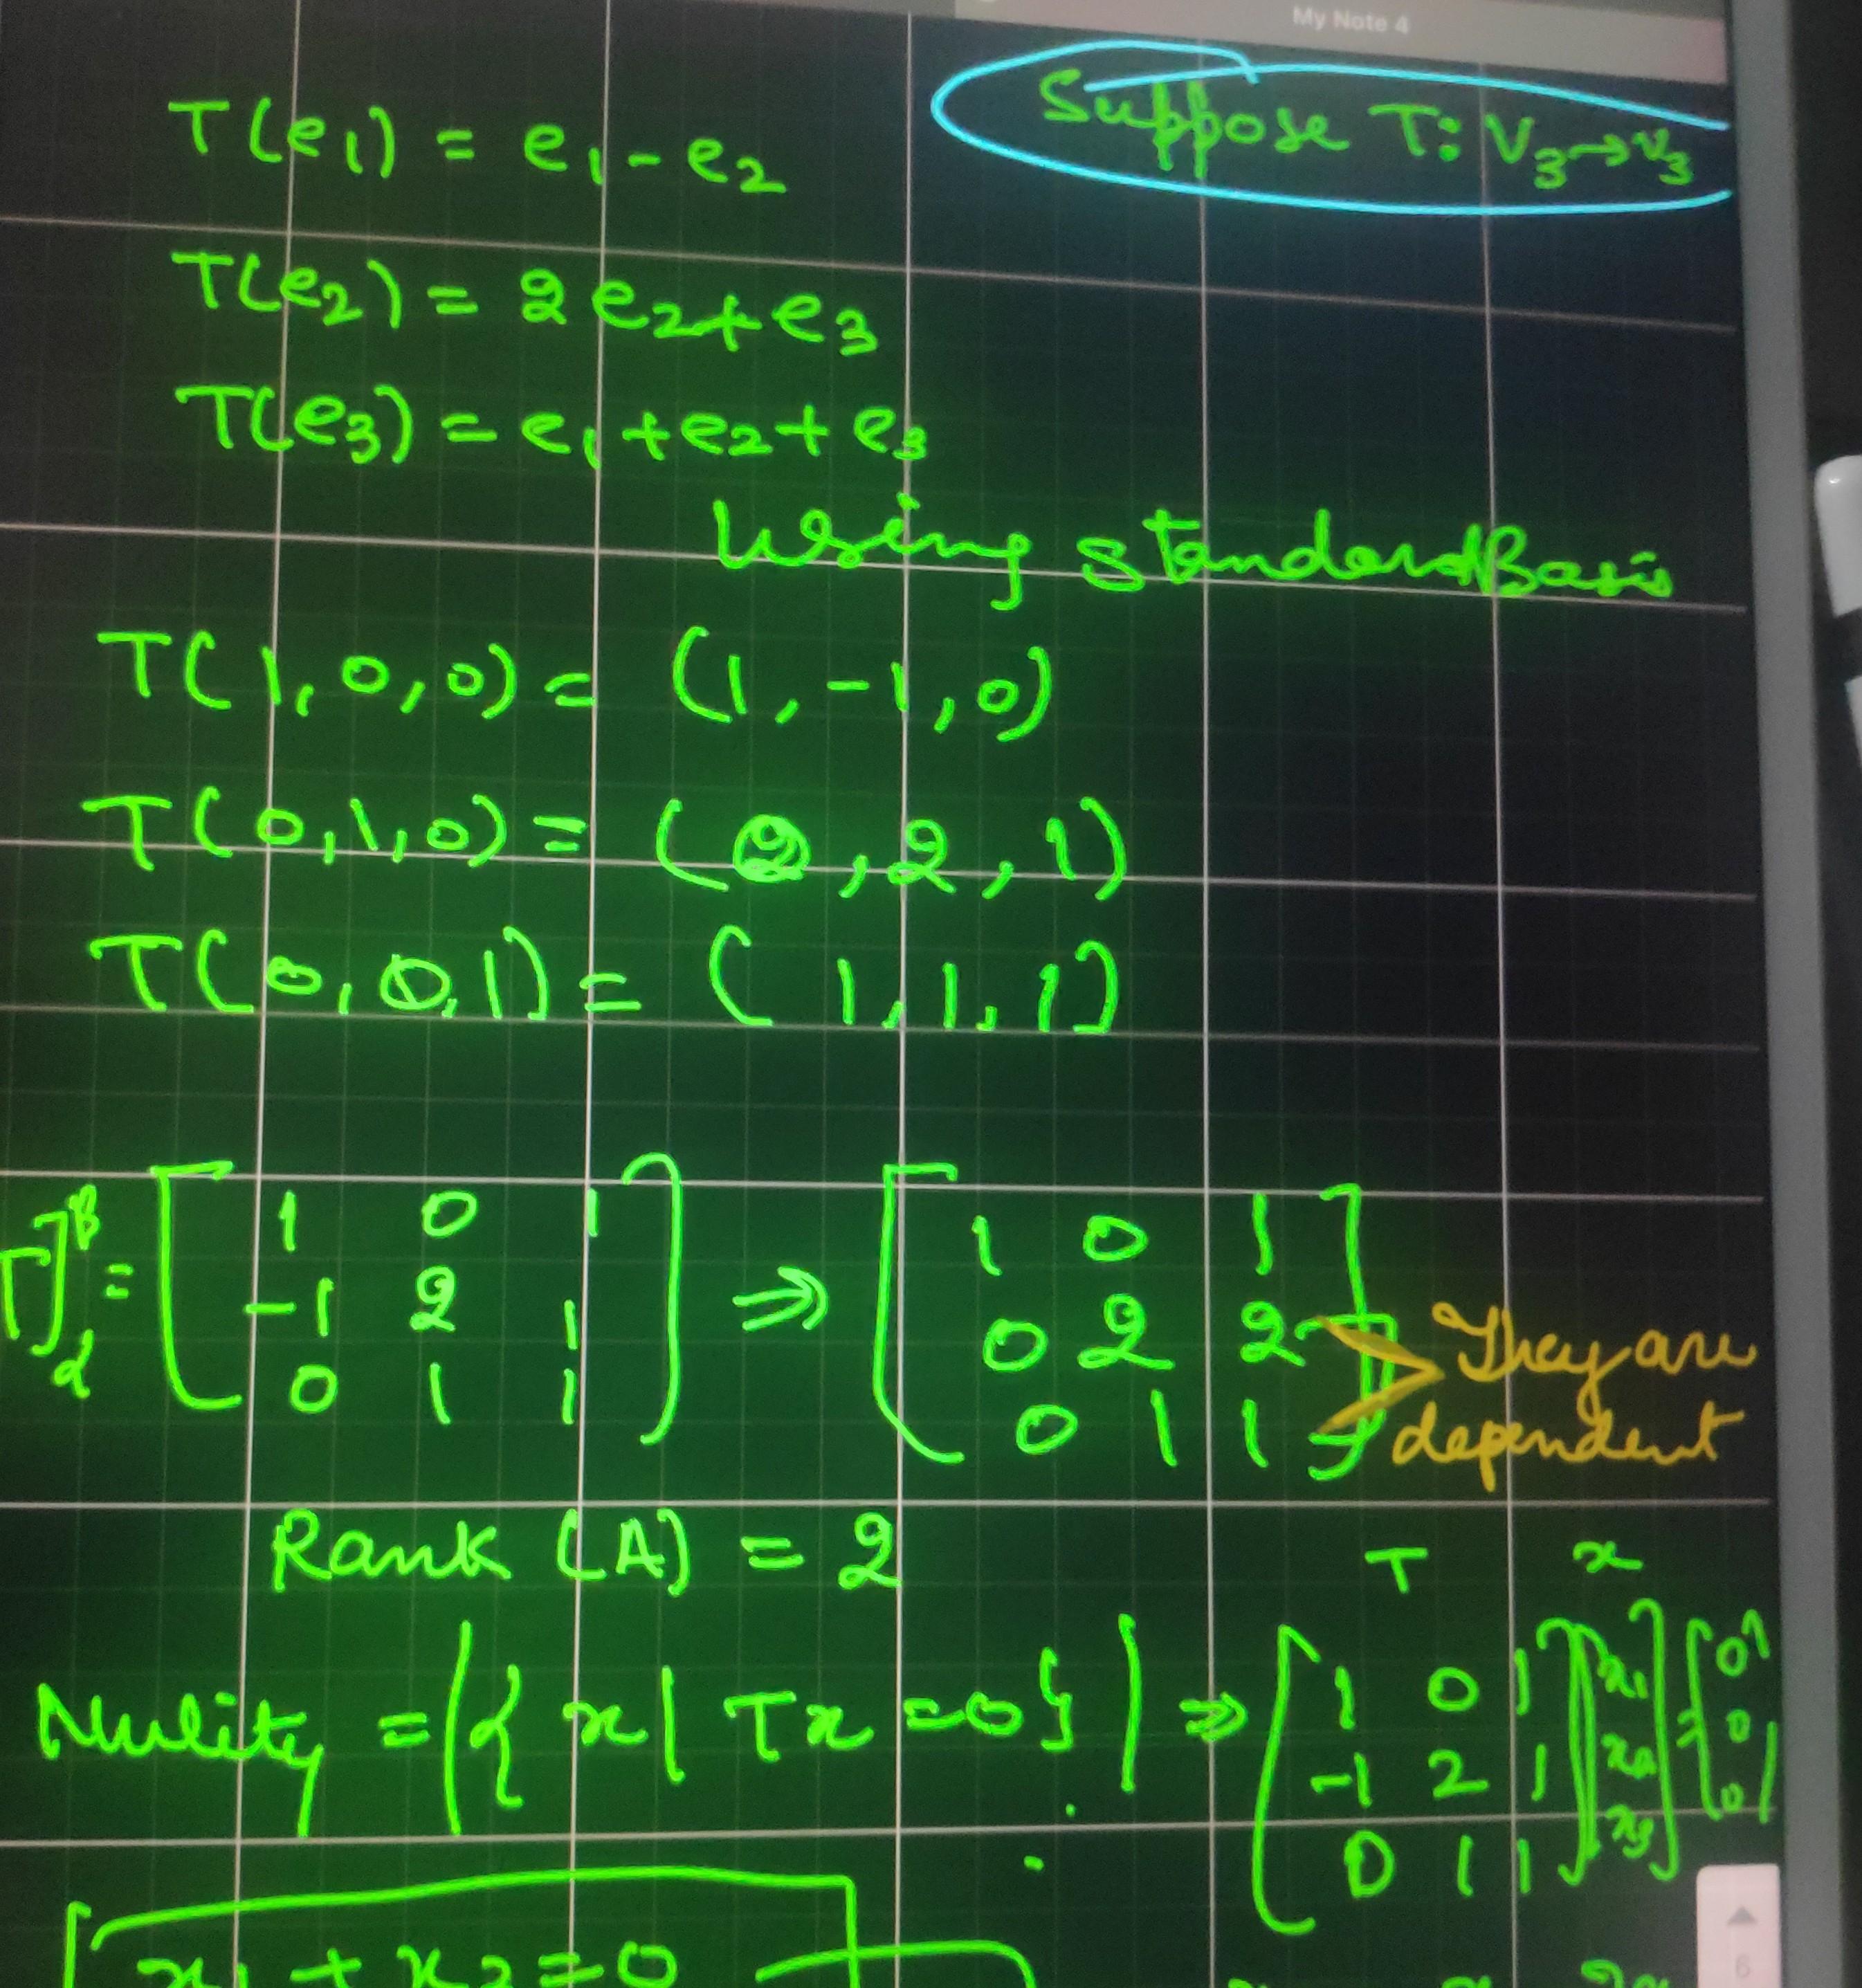 My Note 4
Suppose T: V₃→V₃
T(e₁) = e₁ - e₂
T(e₂) = 2e₂ + e₃
T(e₃) = e₁ + e₂ + e₃
Using standard Basis
T(1, 0, 0) = (1, -1, 0)
T(0, 1, 0) = (0, 2, 1)
T(0, 0, 1) = (1, 1, 1)
T]ᵝ = [ 1 0 1 ] ⇒ [ 1 0 1 ]
α [ -1 2 1 ] [ 0 2 2 ] They are
[ 0 1 1 ] [ 0 1 1 ] dependent
Rank (A) = 2
T x
Nullity = |{ x | Tx = 0 }| ⇒ [ 1 0 1 ] [ x₁ ] = [ 0 ]
[ -1 2 1 ] [ x₂ ] [ 0 ]
[ 0 1 1 ] [ x₃ ] [ 0 ]
6